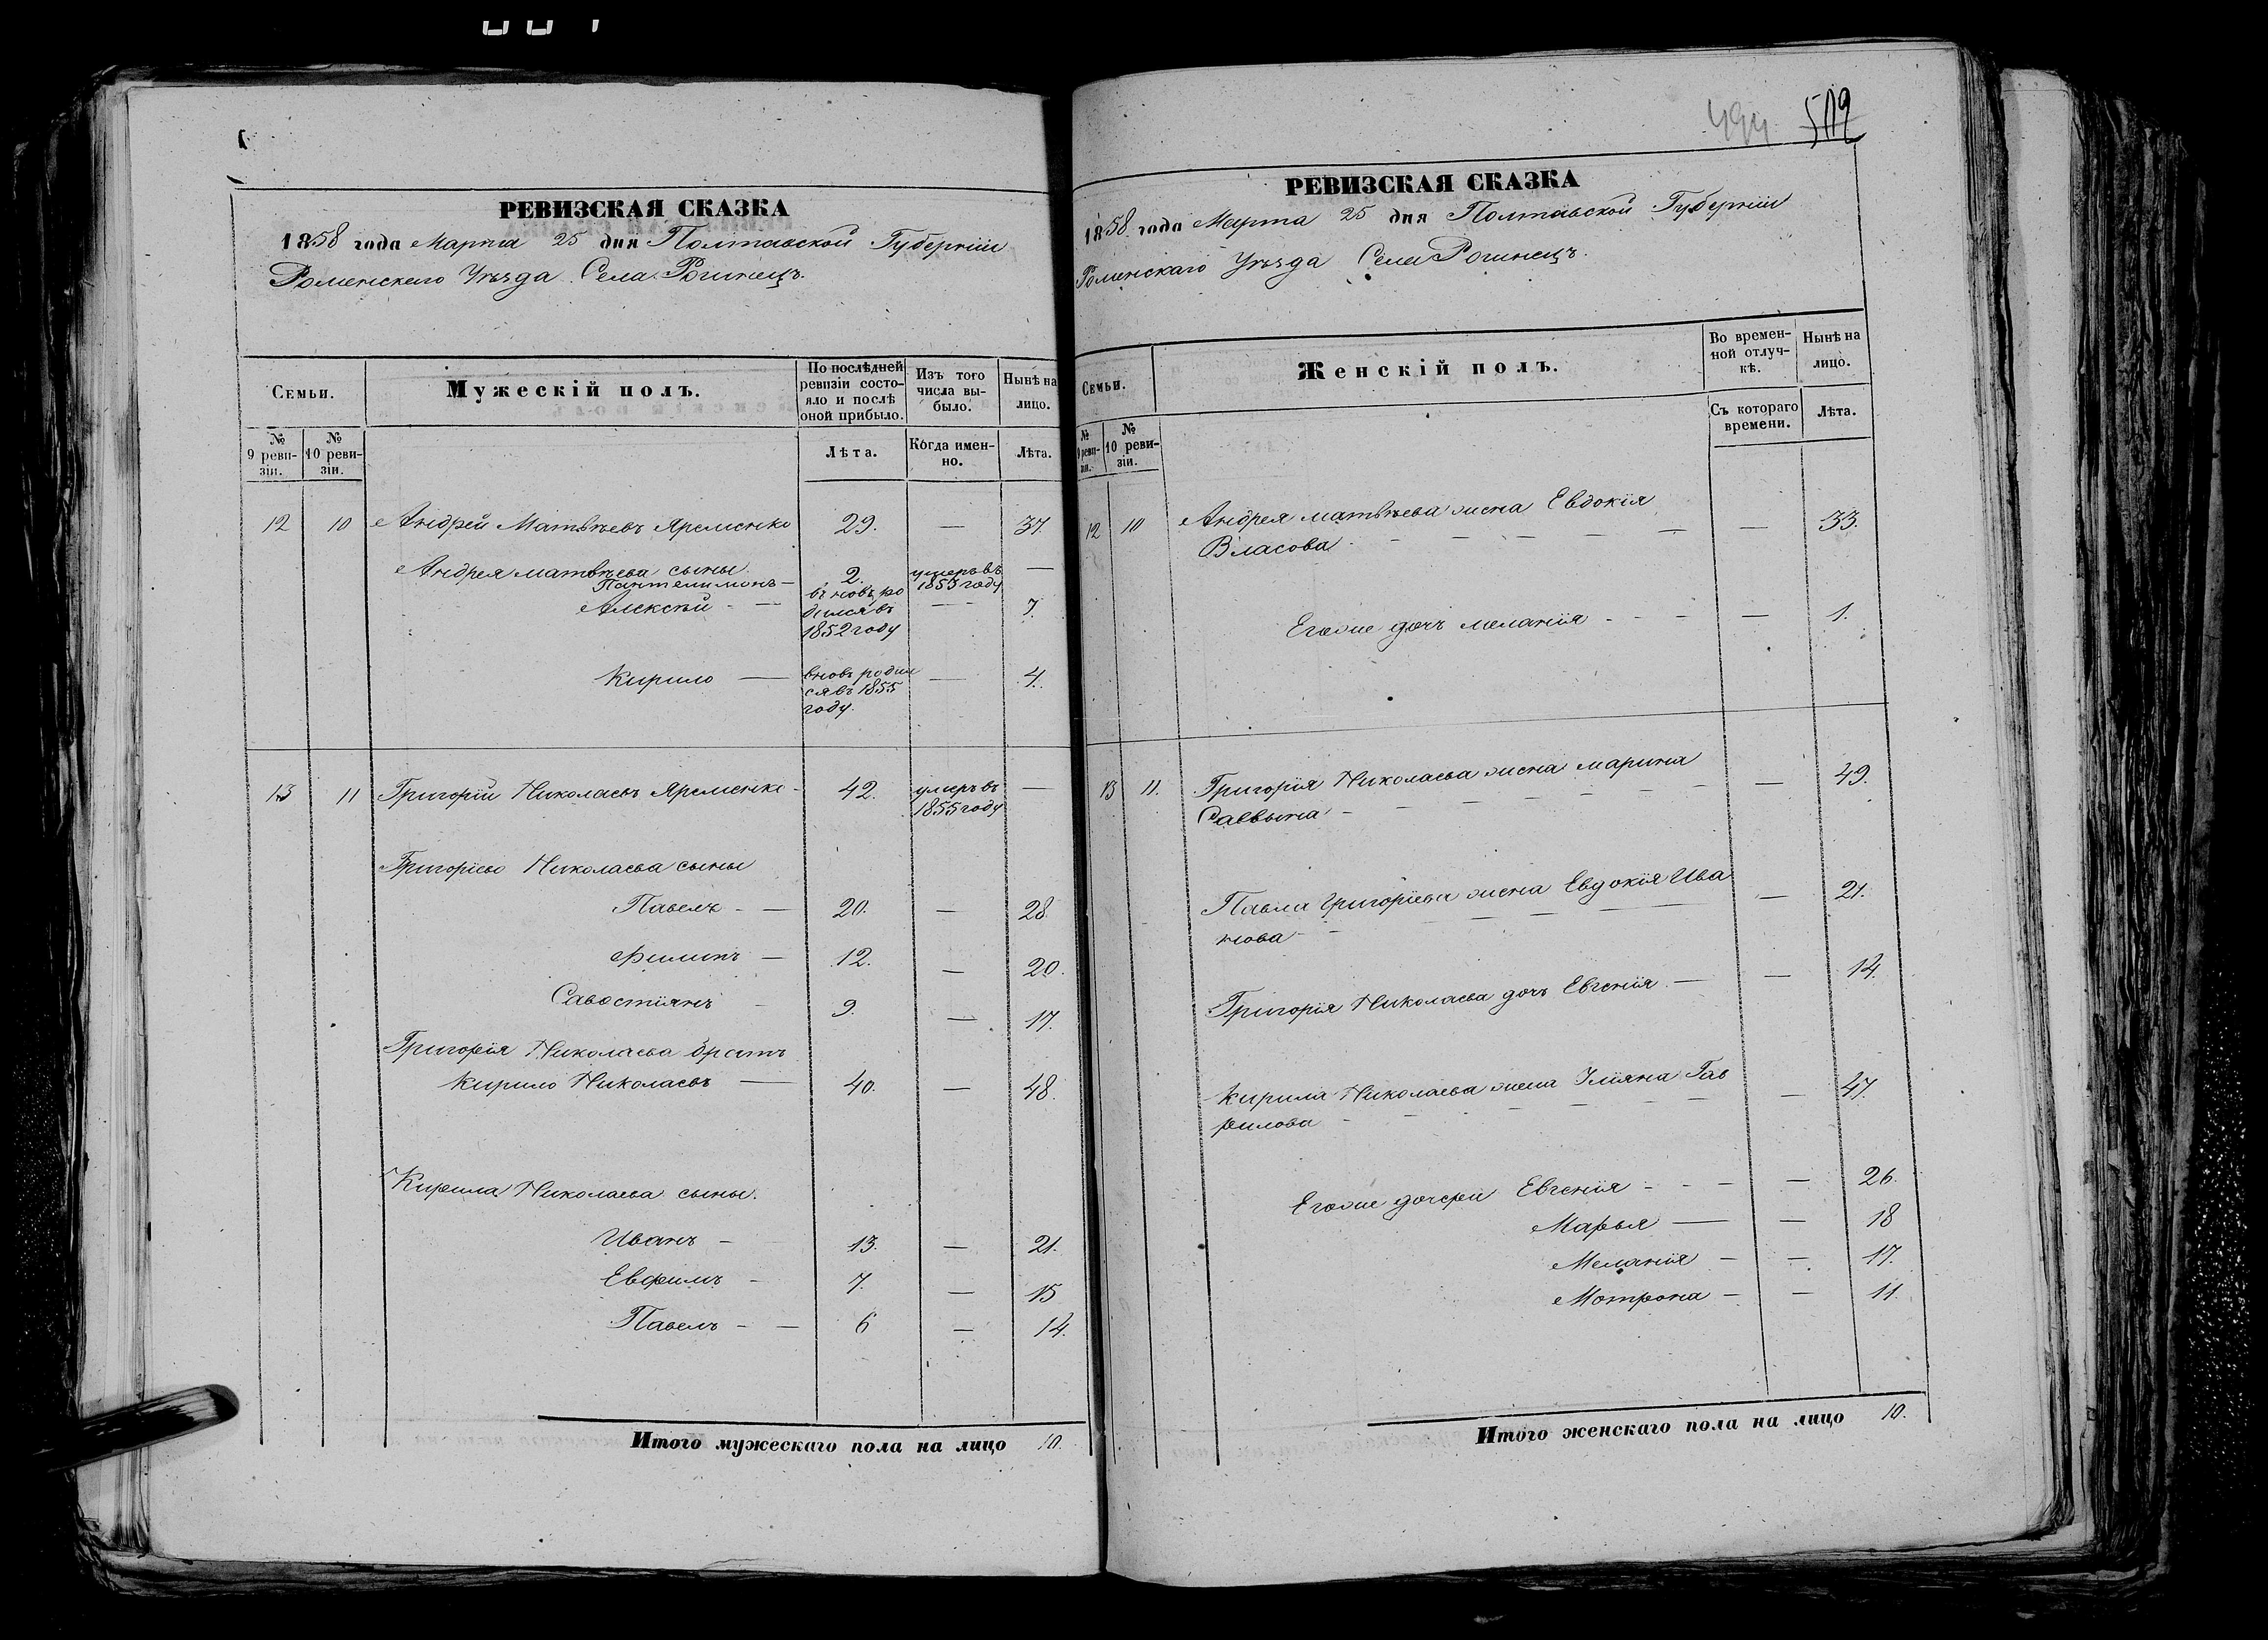 РЕВИЗСКАЯ СКАЗКА
1858 года Марта 25 дня Полтавской Губерніи
Роменскаго Уѣзда Села Рогинецъ.
Семьи.
Мужескій полъ.
По послѣдней ревизіи состояло и послѣ оной прибыло.
Изъ того числа выбыло.
Нынѣ на лицо.
№ 9 ревизіи.
№ 10 ревизіи.
Лѣта.
Когда именно.
Лѣта.
12 10 Андрей Матвѣевъ Яременко 29. — 37.
Андрея Матвѣева сыны
Пантелимонъ — 2. умеръ въ 1855 году —
Алексѣй — вновь родился въ 1852 году — 7.
Кирило — вновь родился въ 1855 году. — 4.
13 11 Григорій Николаевъ Яременко - 42. умеръ въ 1855 году —
Григоріево Николаева сыны
Павелъ - — 20. — 28.
Филипъ — 12. — 20.
Савостіянъ - 9. — 17.
Григорія Николаева братъ
Кирило Николаевъ — 40. — 48.
Кирила Николаева сыны.
Иванъ — 13. — 21.
Евфимъ - 7. — 15
Павелъ - — 6 — 14.
Итого мужескаго пола на лицо 10.
494 502
РЕВИЗСКАЯ СКАЗКА
1858 года Марта 25 дня Полтавской Губерніи
Роменскаго Уѣзда Села Рогинецъ.
Семьи.
Женскій полъ.
Во временной отлучкѣ.
Нынѣ на лицо.
№ 9 ревизіи.
№ 10 ревизіи.
Съ котораго времени.
Лѣта.
12 10 Андрея Матвѣева жена Евдокія
Власова - — — — — — — 33.
Егоже дочь Меланія - - - — 1.
13 11. Григорія Николаева жена Марина
Саввина - — — — — — — 49.
Павла Григоріева жена Евдокія Ива
нова - - — — — — — 21.
Григорія Николаева дочь Евгенія — — 14.
Кирила Николаева жена Уліяна Гав
рилова - - — — — — — 47.
Егоже дочери Евгенія - - — — 26.
Марья — — 18
Меланія — — 17.
Мотрона — — 11.
Итого женскаго пола на лицо 10.